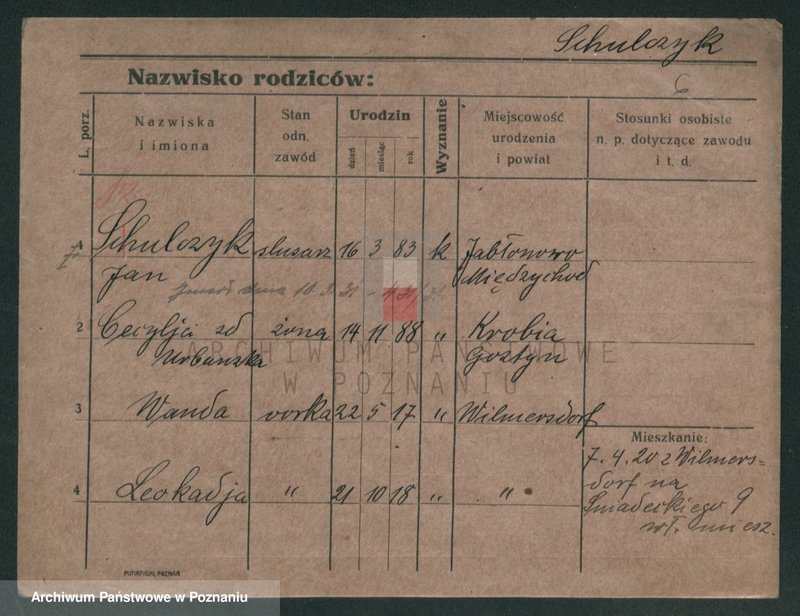 Schulczyk
6
Nazwisko rodziców:
L. porz.
Nazwiska
i imiona
Stan
odn.
zawód
Urodzin
dzień
miesiąc
rok
Wyznanie
Miejscowość
urodzenia
i powiat
Stosunki osobiste
n. p. dotyczące zawodu
i t. d.
1 Schulczyk ślusarz 16 3 83 k Jabłonowo
Jan Międzychod
2 Cecylja zd żona 14 11 88 " Krobia
Urbańska Gostyn
ARCHIWUM PAŃSTWOWE
W POZNANIU
3 Wanda corka 22 5 17 " Wilmersdorf
Mieszkanie:
7. 4. 20 z Wilmers=
dorf na
Śniadeckiego 9
wł. miesz.
4 Leokadja " 21 10 18 " "
PUTIATYCKI, POZNAŃ
Archiwum Państwowe w Poznaniu